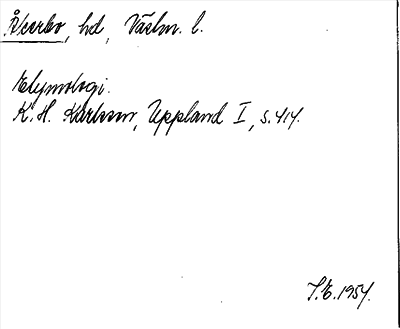 Åkerbo, hd, Västm. l.
Etymologi.
K. H. Karlsson, Uppland I, s. 414.
S.E. 1954.